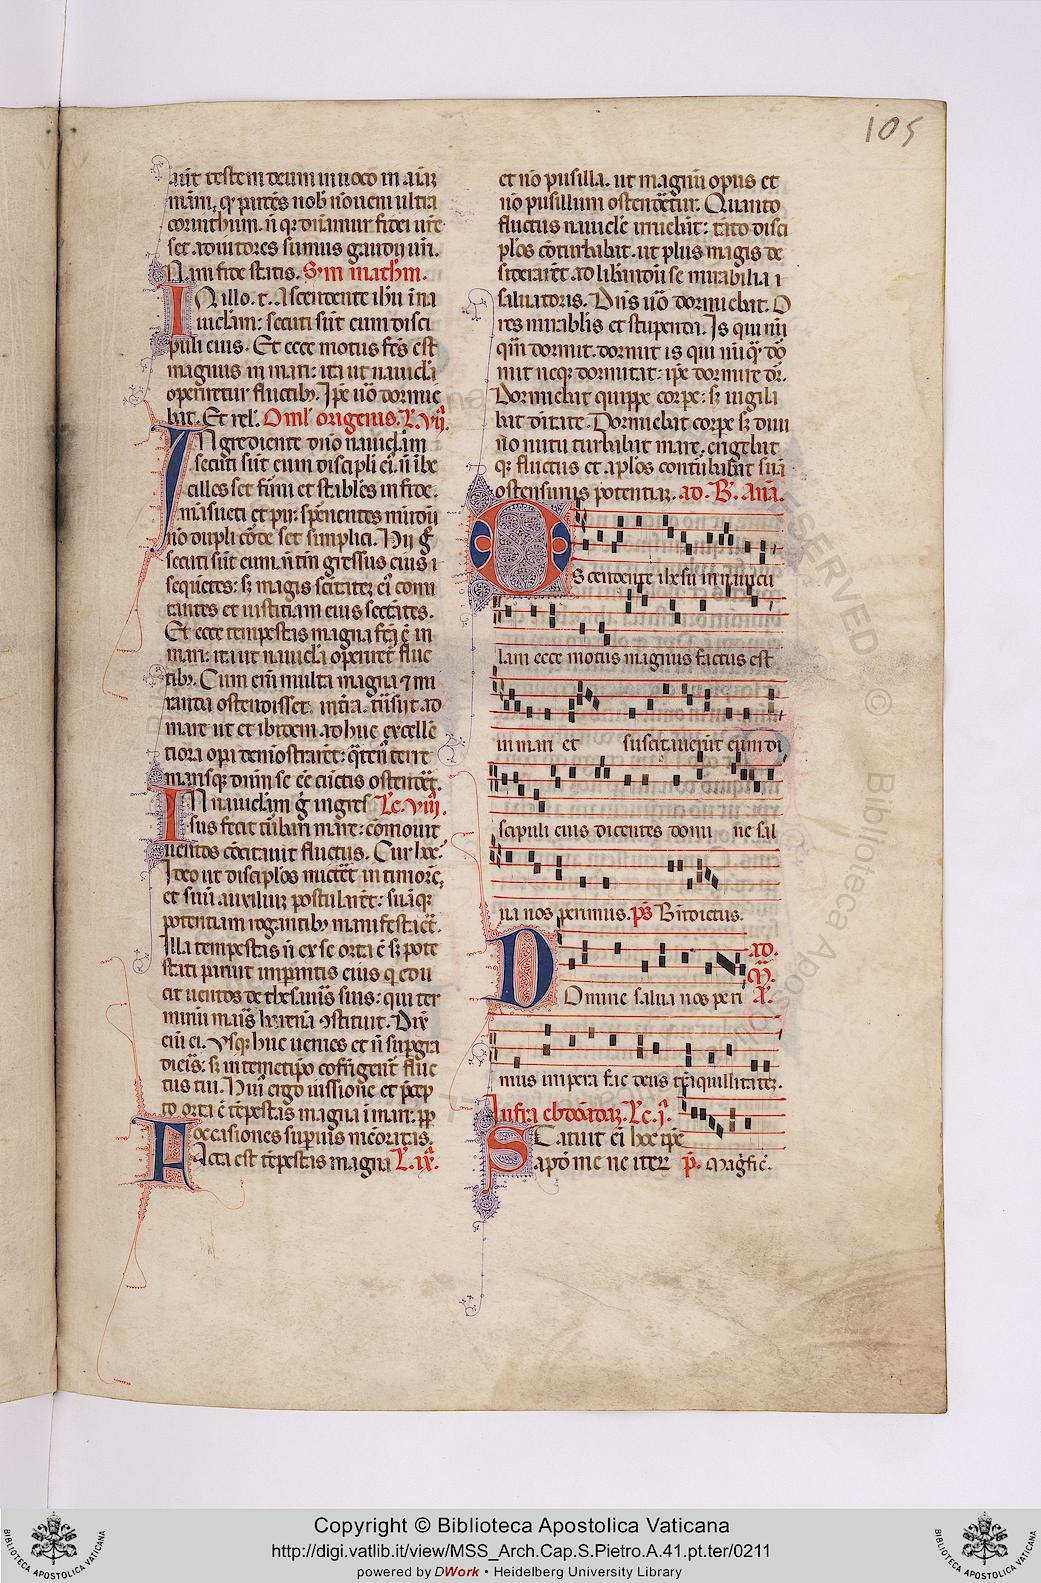 105
aūt testem deum inuoco in aīaʒ
meam, qꝫ parcens uob̄ n̄ oueni ultra
corinthum. n̄ qꝫ dn̄amur fidei ur̄e
set adiutores sumus gaudij ur̄i.
Nam fide statis. S'm math'm.
IN illo. t. Ascendente ihu in na
uiclam: secuti sūt eum disci
puli eius. Et ecce motus fc̄s est
magnus in mari: ita ut nauicla
operiretur fluctibꝫ. Ip̄e uō dormie
bat. Et rel'. Oml' origenis. L'. vij.
INgrediente dn̄o nauiclam
secuti sūt eum discipli ei'. n̄ inbe
cilles set firmi et stabiles in fide.
māsueti et pij. sp̄nentes mūdū
nō dupli corde set simplici. Hij g̊
secuti sūt eum. n̄ tm̄ gressus eius
sequētes: sꝫ magis scītatē ei' comi
tantes et iustitiam eius sectātes.
Et ecce tempestas magna fca ē in
mari: ita ut nauicla operiret' fluc
tibꝫ. Cum eni multa magna ⁊ mi
randa ostendisset in tr̄a. trāsijt ad
mare ut et ibidem adhuc excellē
tiora opa demōstraret: q̄tenꝰ terre
marisqꝫ dnm se ee cunctis ostenderet.
IN nauiclam g̊ ingres Lc. viij.
sus fecit turbari mare: cōmouit
uentos cōcitauit fluctus. Cur hoc?
Ideo ut disciplos mitteret in timore,
et suū auxiliuꝫ postularēt: suāqꝫ
potentiam rogantibꝫ manifestaret.
Illa tempestas n̄ ex se orta ē sꝫ pote
stati paruit imperantis eius q edu
cit uentos de thesauris suis: qui ter
minū maris harenā ↄstituit. Dix
eni ei. Vsqꝫ huc uenies et n̄ suprgra
dieris: sꝫ in temetipo cōfringent' fluc
tus tui. Huiꝰ ergo iussione et precep
to orta ē tēpestas magna i mari. ppt
occasiones superius memoratas.
FActa est tēpestas magna L'. ix.
et nō pusilla. ut magnū opus et
nō pusillum ostenderetur. Quanto
fluctus nauicle irruebāt: tāto disci
plos cōturbabāt. ut plus magis de
siderarēt ad liberandū se mirabilia
saluatoris. Dn̄s uō dormiebat. O
res mirablis et stupenda. Is qui nū
qm̄ dormit. dormit is qui nūqꝫ dor
mit neqꝫ dormitat: ip̄e dormire dr̄.
Dormiebat quippe corpe: sꝫ uigila
bat deitate. Dormiebat corpe sꝫ diui
no nutu turbabat mare. erigebat
qꝫ fluctus et aplos conturbabat suā
ostensurus potentiaʒ. ad. B. Anā.
AScendente ihesu in nauicu
lam ecce motus magnus factus est
in mari et suscitauerūt eum di
scipuli eius dicentes domi ne sal
ua nos perimus. ps Bn̄dictus.
Domine salua nos peri ad. M. A.
mus impera fac deus tranquillitateꝫ.
Infra ebdōadaꝫ. Lc. j.
STatuit ei hec ip̄e
Sapō me ne iter p̄. Magfic̄.
Copyright © Biblioteca Apostolica Vaticana
http://digi.vatlib.it/view/MSS_Arch.Cap.S.Pietro.A.41.pt.ter/0211
powered by DWork • Heidelberg University Library